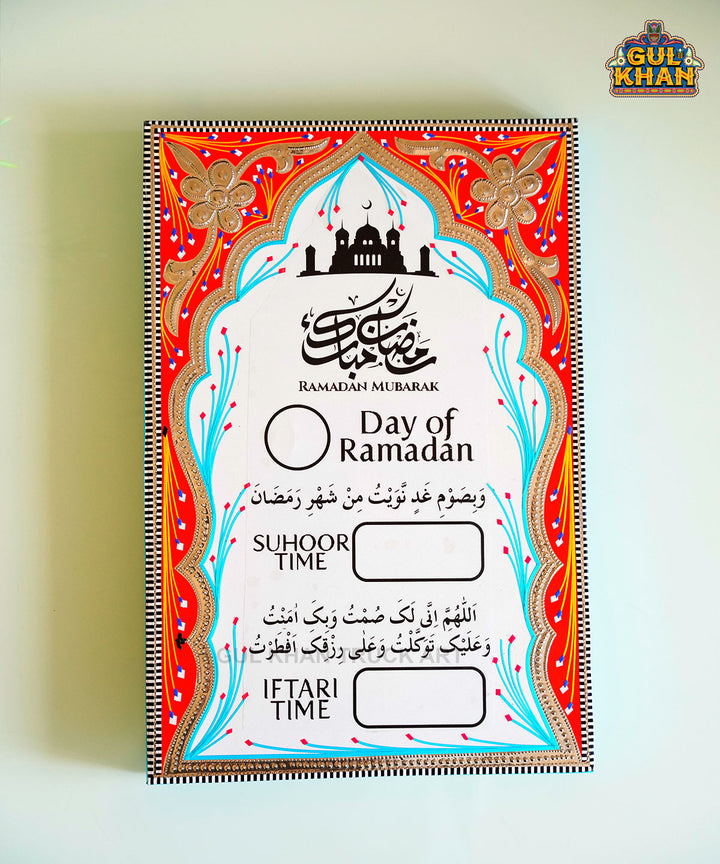 GUL
KHAN
رمضان مبارك
RAMADAN MUBARAK
Day of
Ramadan
وَبِصَوْمِ غَدٍ نَّوَيْتُ مِنْ شَهْرِ رَمَضَانَ
SUHOOR
TIME
اَللّٰهُمَّ اِنَّی لَکَ صُمْتُ وَبِکَ اٰمَنْتُ
وَعَلَیْکَ تَوَکَّلْتُ وَعَلٰی رِزْقِکَ اَفْطَرْتُ
GUL KHAN TRUCK ART
IFTARI
TIME